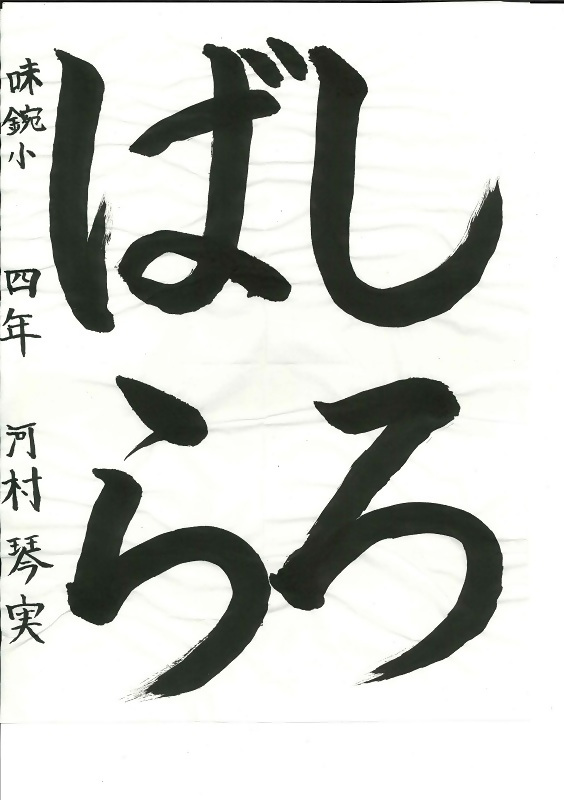 しろ
ばら
味鋺小 四年 河村琴実